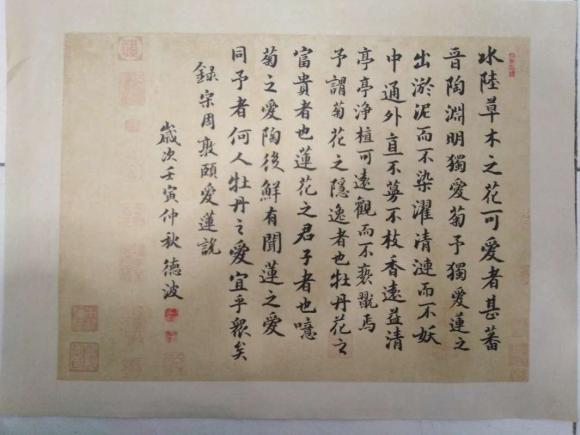 水陸草木之花可愛者甚蕃
晉陶淵明獨愛菊予獨愛蓮之
出淤泥而不染濯清漣而不妖
中通外直不蔓不枝香遠益清
亭亭淨植可遠觀而不褻翫焉
予謂菊花之隱逸者也牡丹花之
富貴者也蓮花之君子者也噫
菊之愛陶後鮮有聞蓮之愛
同予者何人牡丹之愛宜乎眾矣
錄宋周敦頤愛蓮說
歲次壬寅仲秋德波